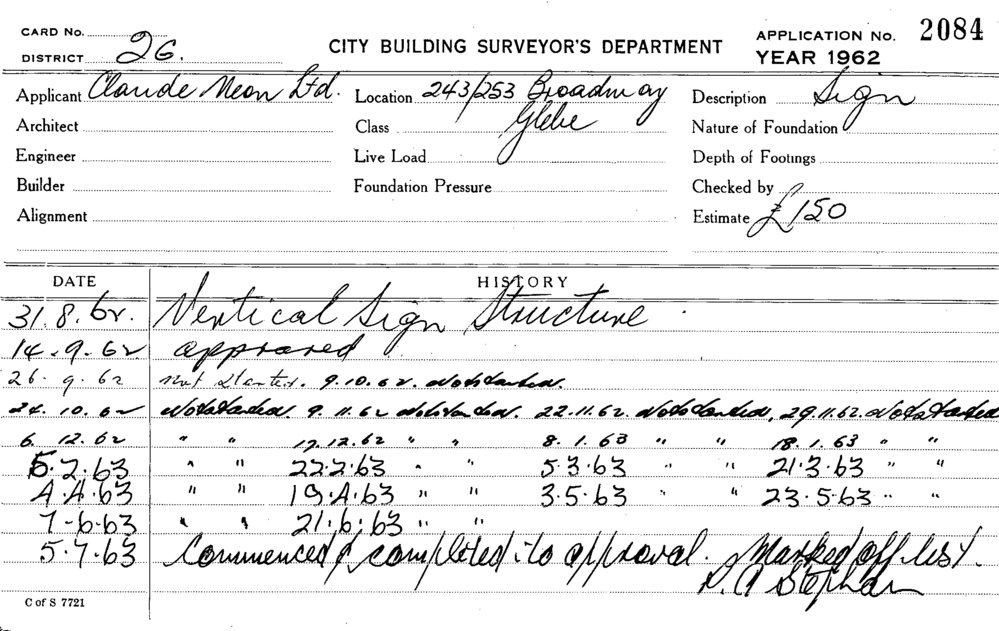 CARD No.
DISTRICT 26.
CITY BUILDING SURVEYOR'S DEPARTMENT
APPLICATION No. 2084
YEAR 1962
Applicant Claude Neon Ltd. Location 243/253 Broadway Description Sign
Architect Class Glebe Nature of Foundation
Engineer Live Load Depth of Footings
Builder Foundation Pressure Checked by
Alignment Estimate £150
DATE HISTORY
31.8.62. Vertical Sign Structure.
14.9.62 approved
26.9.62 Not Started. 9.10.62. Not Started.
24.10.62 Not Started. 9.11.62 Not Started. 22.11.62. Not Started, 29.11.62. Not Started
6.12.62 " " 17.12.62 " " 8.1.63 " " 18.1.63 " "
5.2.63 " " 22.2.63 " " 5.3.63 " " 21.3.63 " "
4.4.63 " " 19.4.63 " " 3.5.63 " " 23.5.63 " "
7-6-63 " " 21.6.63 " "
5.7.63 Commenced & completed to approval. Marked off list.
R. A Stephan
C of S 7721